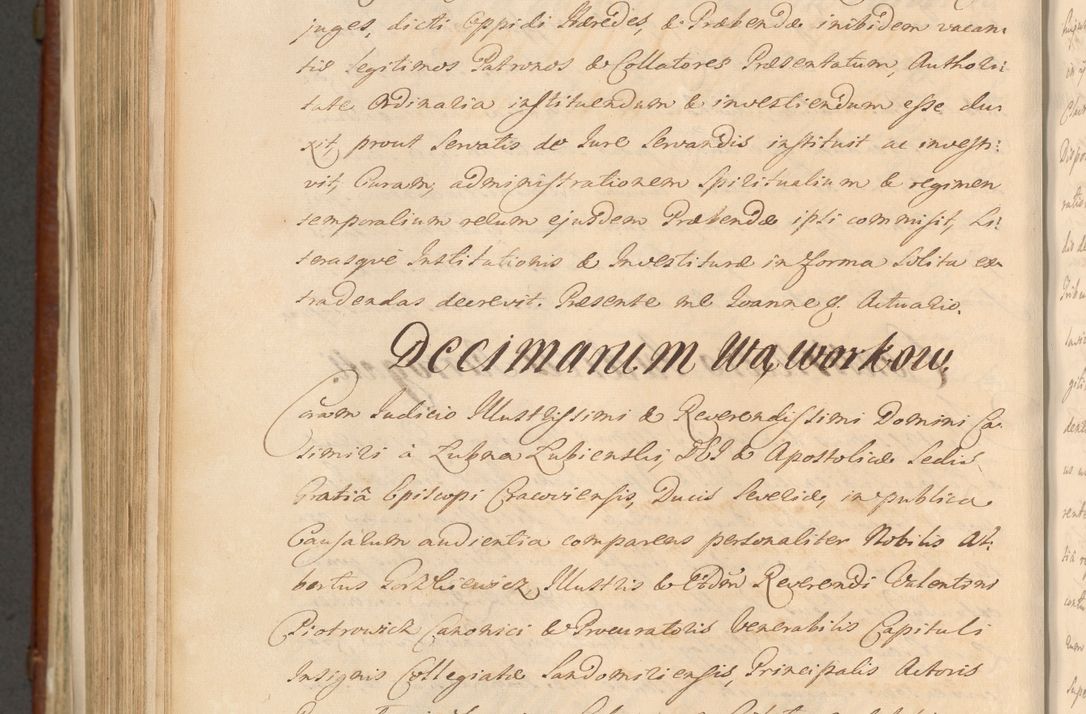 juges, dicti Oppidi Hæredes, & Præbendæ inibidem vacan:
tis legitimos Patronos & Collatores Præsentatum, Authori:
tate Ordinaria instituendum & investiendum esse du:
xit, prout servatis de Jure servandis instituit ac investi:
vit, Curam, administrationem Spiritualium & regimen
temporalium rerum ejusdem Præbendæ ipsi commisit, Li:
terasqve Institutionis & Investituræ in forma solita ex:
tradendas decrevit. Præsente me Joanne Actuario.
Decimarum Wąworkow.
Coram Judicio Illustrissimi & Reverendissimi Domini Ca:
simiri à Łubna Łubienski, DEI & Apostolicæ Sedis
Gratiâ Episcopi Cracoviensis, Ducis Severiæ, in publica
Causarum audientia comparens personaliter Nobilis Al:
bertus Illustris & Rndi Reverendi Valentini
Piotrowicz Canonici & Procuratoris Venerabilis Capituli
Insignis Collegiatæ Sandomiriensis, Principalis Actoris